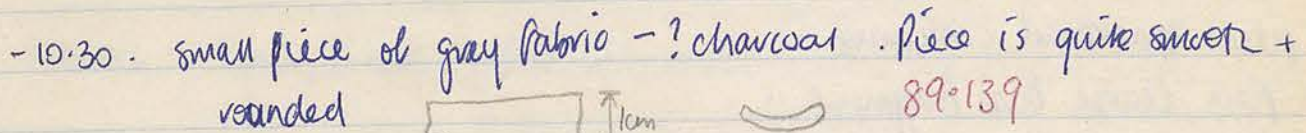 -10.30. small piece of gray fabric - ? charcoal. Piece is quite smooth +
rounded 1cm 89.139